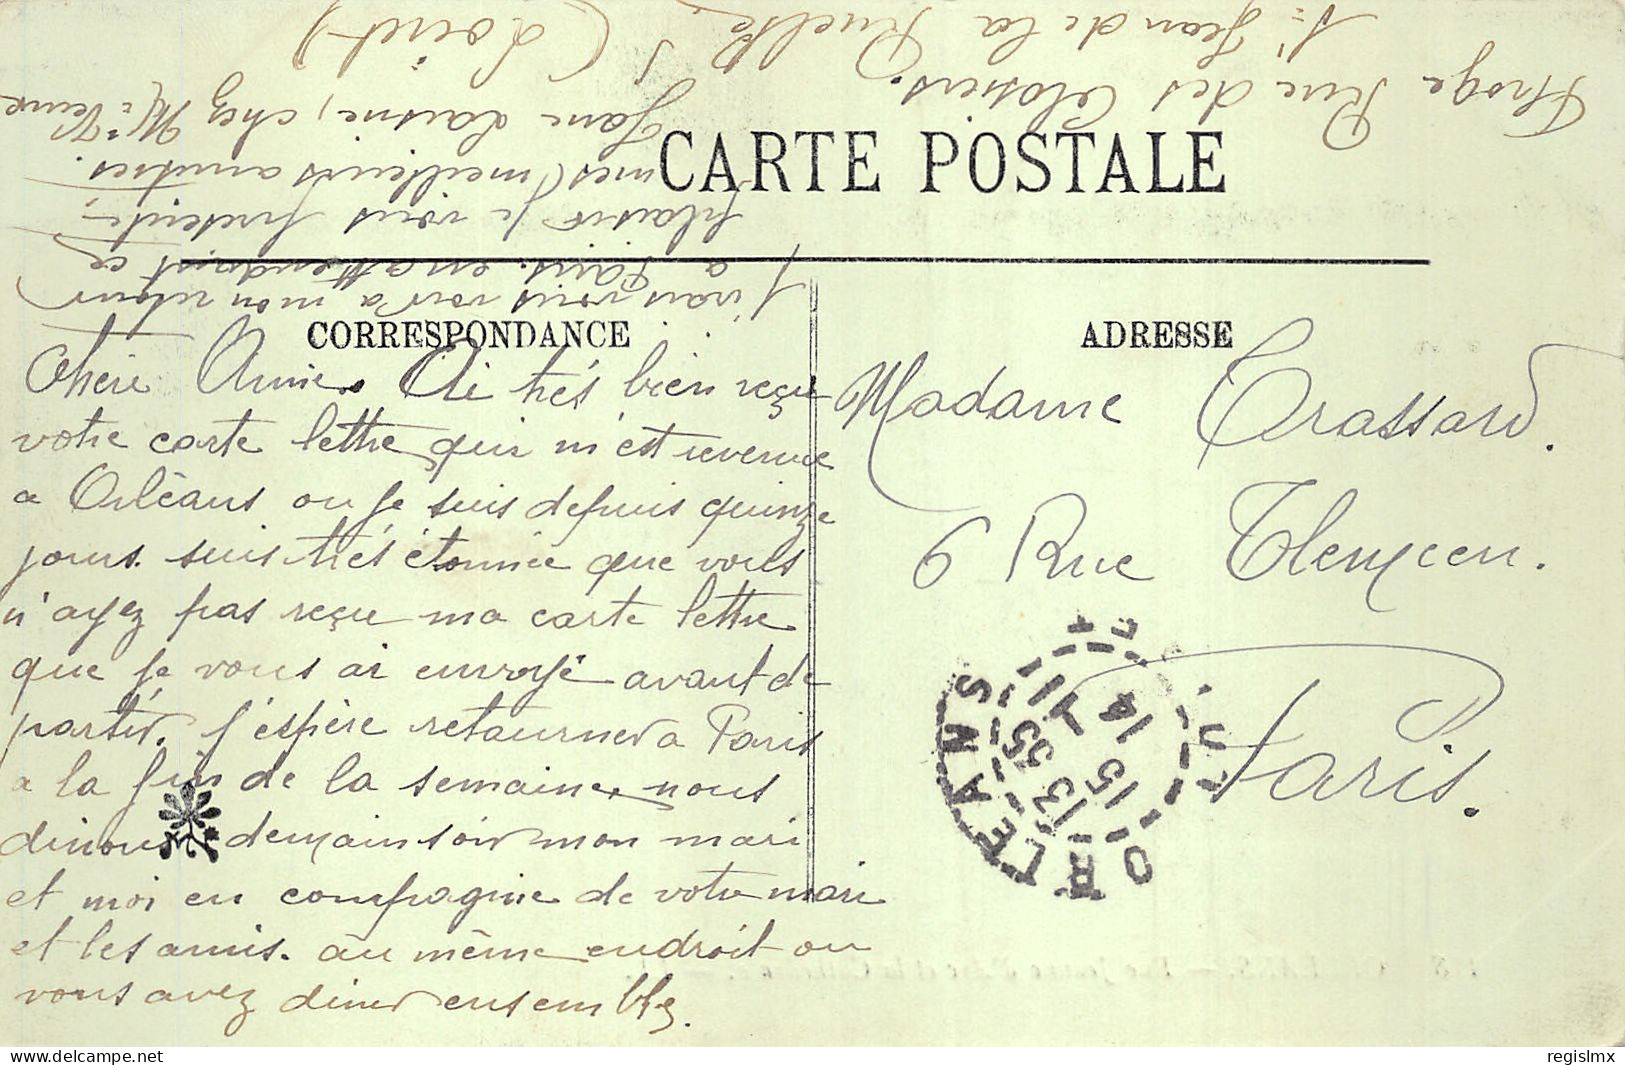 CARTE POSTALE
CORRESPONDANCE
Chère Amie. Ai très bien reçu
votre carte lettre qui m'est revenue
a Orléans ou je suis depuis quinze
jours. suis très étonnée que vous
n'ayez pas reçu ma carte lettre
que je vous ai envoyé avant de
partir. j'espère retourner a Paris
a la fin de la semaine, nous
dinons demain soir mon mari
et moi en compagnie de votre mari
et les amis. au même endroit ou
vous avez diner ensemble.
J'irais vous voir a mon retour
a Paris. en attendant ce
plaisir je vous présente
mes meilleurs amitiés.
Jane Laisne, chez Me Veuve
Rue des Closiers.
St Jean de la Ruelle
(Loiret)
ADRESSE
Madame Trassard.
6 Rue Tlemcen.
Paris.
ORLEANS
13 35
15
14
Rue Jeanne d'Arc et la
regislmx
www.delcampe.net